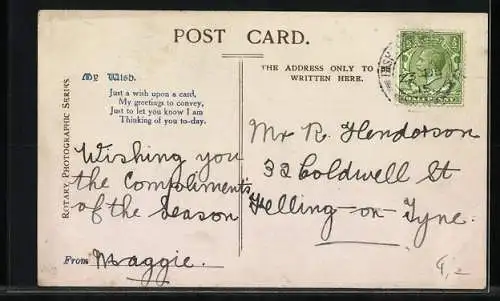 POST CARD.
THE ADDRESS ONLY TO
WRITTEN HERE.
My Wish.
Just a wish upon a card,
My greetings to convey,
Just to let you know I am
Thinking of you to-day.
ROTARY PHOTOGRAPHIC SERIES.
Wishing you
the compliments
of the Season
From Maggie.
Mr R. Henderson
32 Coldwell St
Felling-on-Tyne.